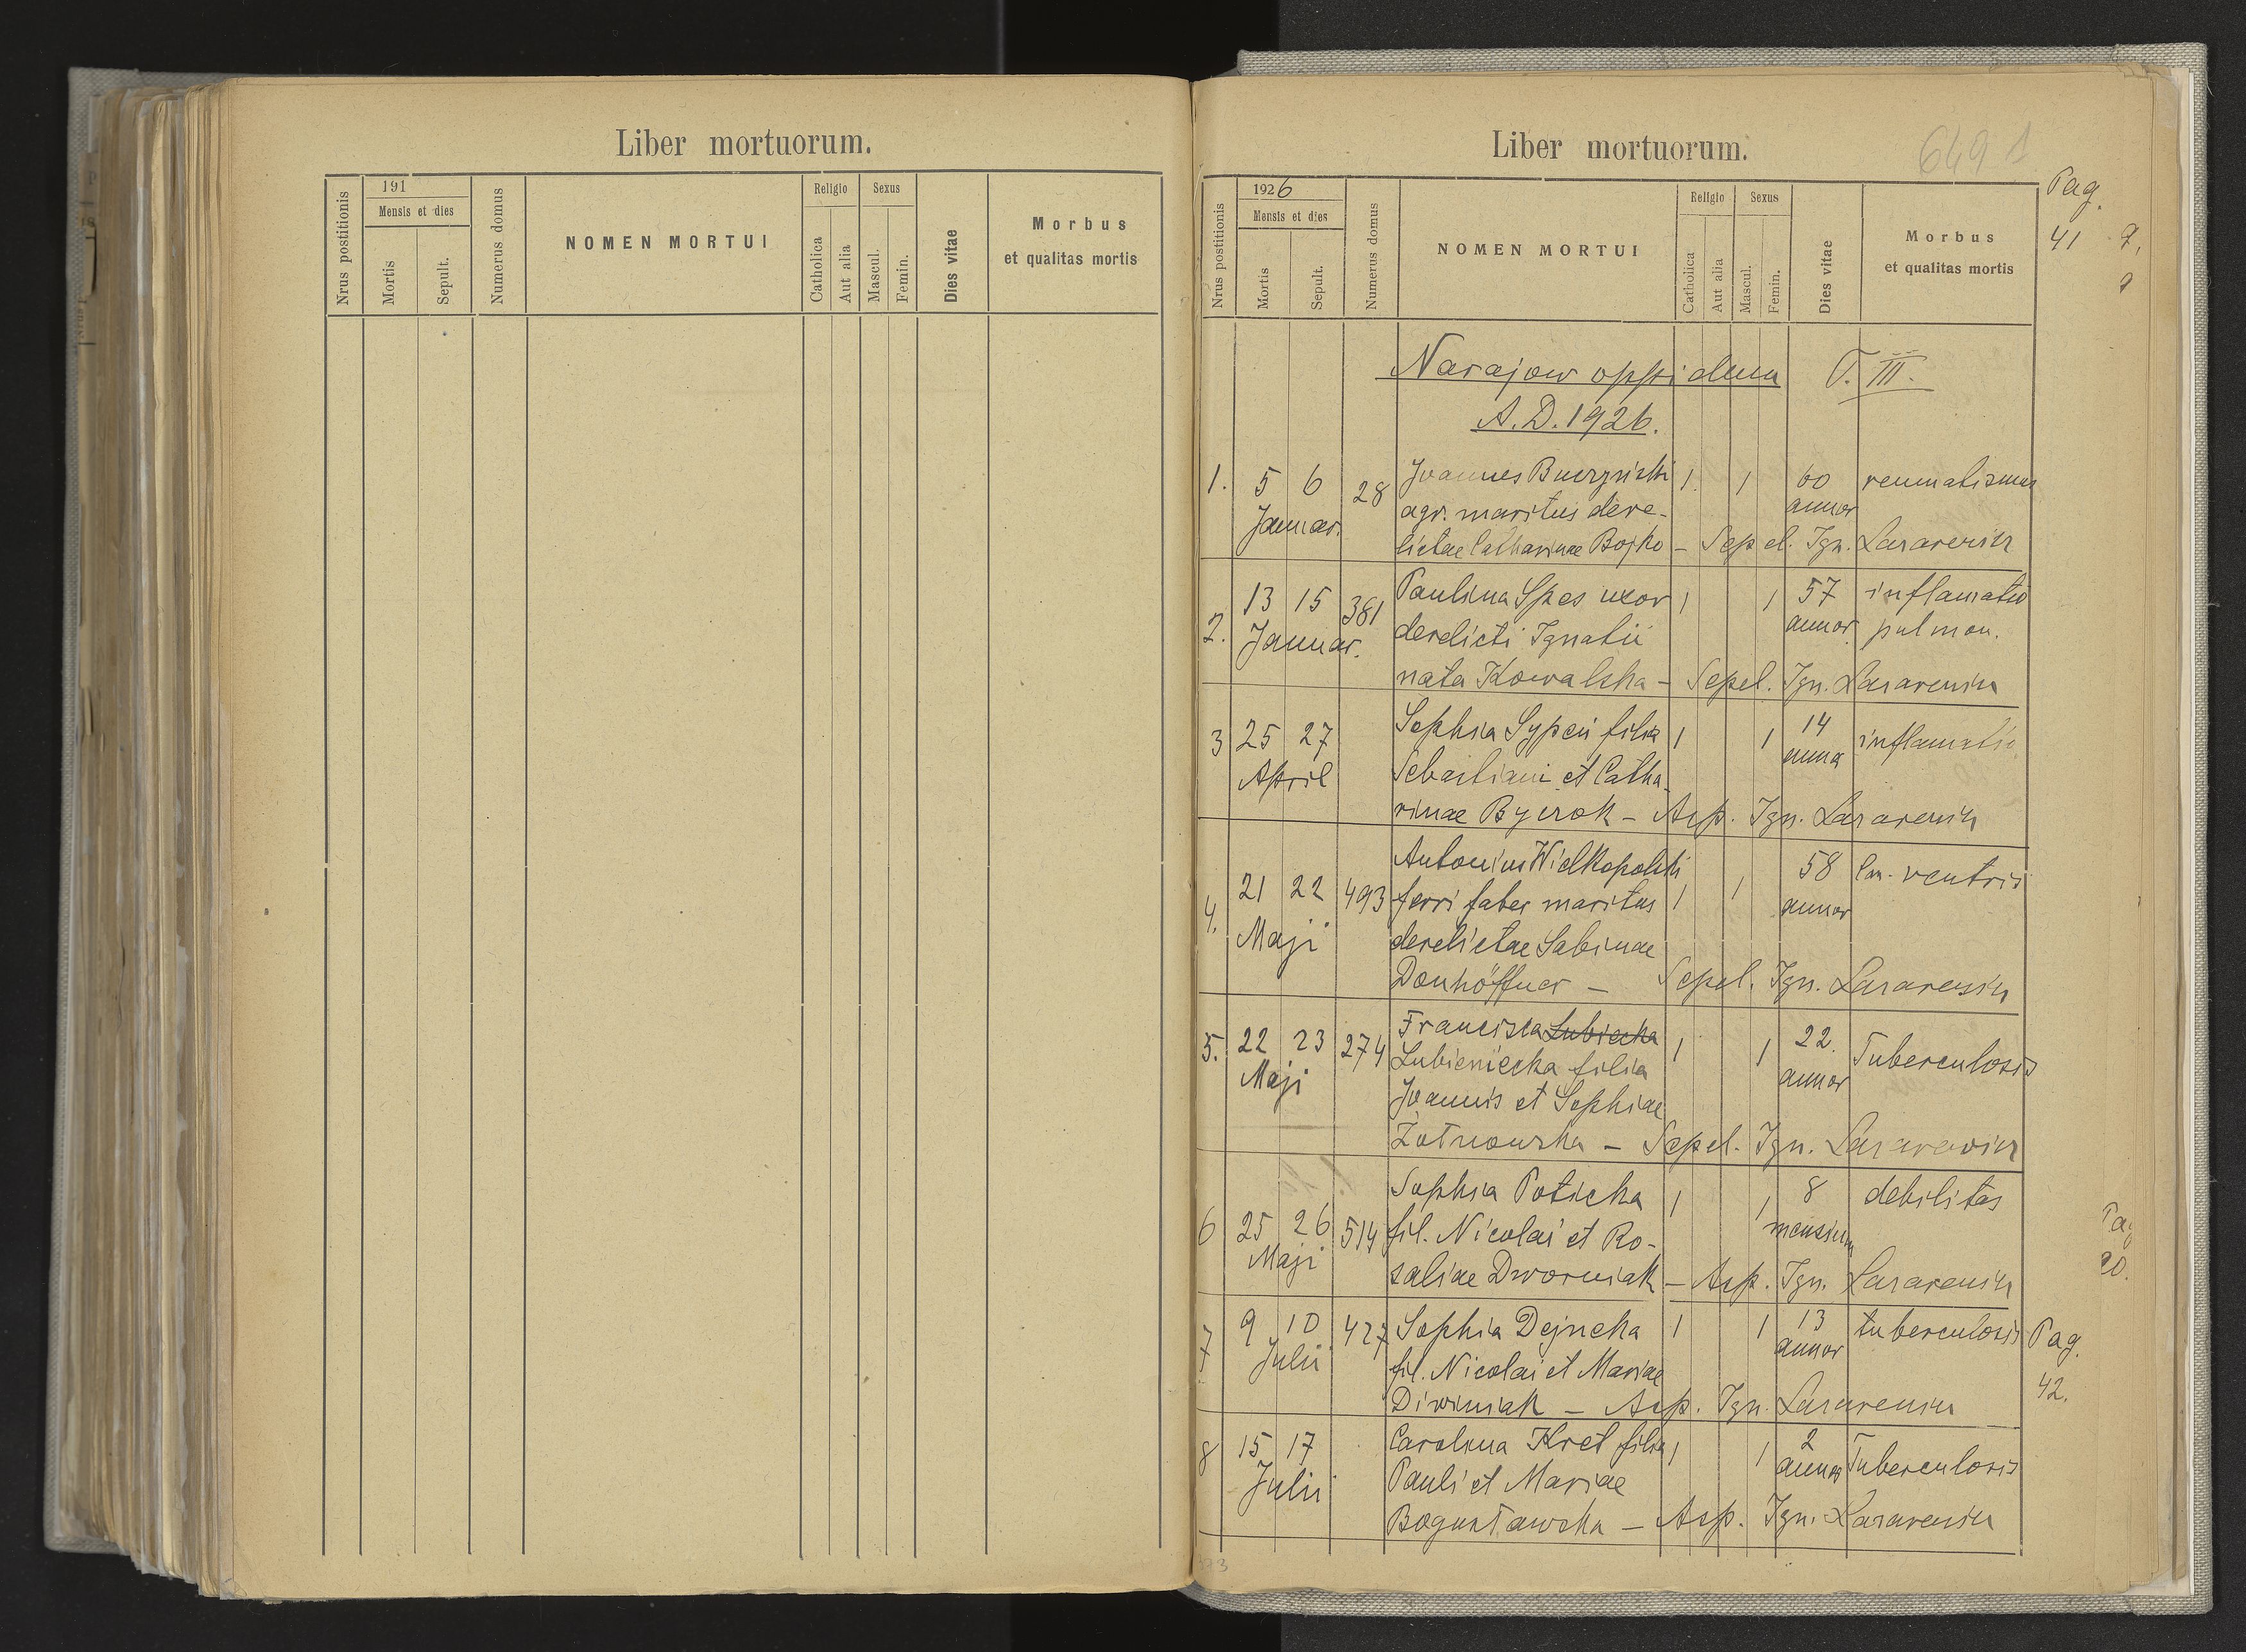 Liber mortuorum.
Nrus postitionis
191
Mensis et dies
Mortis
Sepult.
Numerus domus
NOMEN MORTUI
Religio
Catholica
Aut alia
Sexus
Mascul.
Femin.
Dies vitae
Morbus
et qualitas mortis
Liber mortuorum.
649 1
Pag.
41
Nrus postitionis
1926
Mensis et dies
Mortis
Sepult.
Numerus domus
NOMEN MORTUI
Religio
Catholica
Aut alia
Sexus
Mascul.
Femin.
Dies vitae
Morbus
et qualitas mortis
Narajow oppidum T. III.
A.D. 1926.
1. 5 6 28 Joannes 1. 1 60 reumatismus
Januar. agr. maritus dere- annor
lictae Catharinae Bojko - Sepel. Ign.
2. 13 15 381 Paulina Spes uxor 1 1 57 inflamatio
Januar. derelicti Ignatii annor pulmon.
nata Kowalska - Sepel. Ign.
3 25 27 Sophia Sypeń filia 1 1 14 inflamatio
April Sebastiani et Catha- anno
rinae - Asp. Ign.
4. 21 22 493 Antonius Wielkopolski 1 1 58 ventris
Maji ferri faber maritus annor
derelictae Sabinae
Donhöffner - Sepel. Ign.
5. 22 23 274 Francisca Lubiecka 1 1 22. Tuberculosis
Maji Lubieniecka filia annor
Joannis et Sophiae
Żołnowska - Sepel. Ign.
6 25 26 514 Sophia Poticha 1 1 8 debilitas
Maji fil. Nicolai et Ro- mensium
saliae Dworniak - Asp. Ign.
7 9 10 427 Sophia Dejneka 1 1 13 tuberculosis Pag.
Julii fil. Nicolai et Mariae annor 42.
Diwniak - Asp. Ign.
8 15 17 Carolina Kret filia 1 1 2 Tuberculosis
Julii Pauli et Mariae annor
Bogusławska - Asp. Ign.
Pag
20.